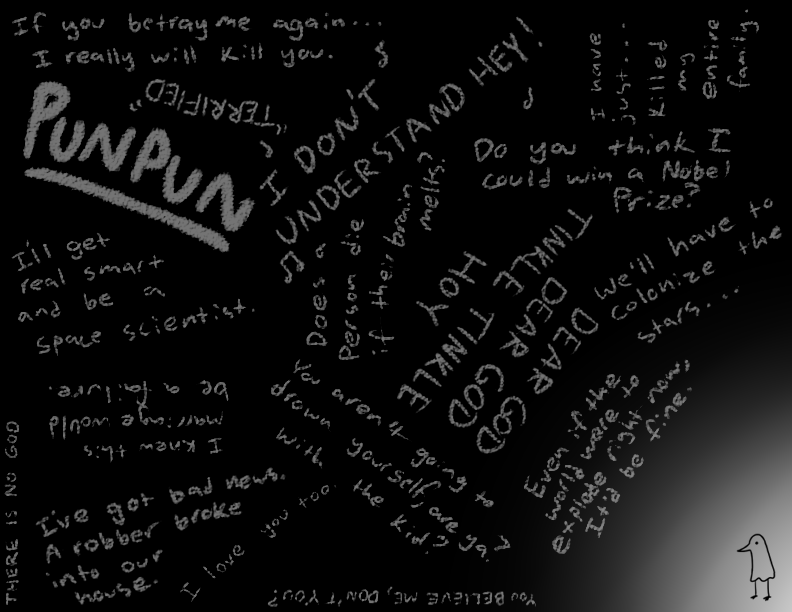 If you betray me again...
I really will kill you.
PUNPUN
"TERRIFIED"
I DON'T
UNDERSTAND HEY!
I have
just...
killed
my
entire
family.
Do you think I
could win a Nobel
Prize?
Does a
Person die
if their brain
melts?
I'll get
real smart
and be a
space scientist.
HOY TINKLE
TINKLE DEAR GOD
DEAR GOD
We'll have to
colonize the
stars...
I knew this
marriage would
be a failure.
You aren't going to
drown yourself, are ya?
with the kid?
Even if the
world were to
explode right now,
It'd be fine.
THERE IS NO GOD
I've got bad news.
A robber broke
into our
house.
I love you too.
YOU BELIEVE ME, DON'T YOU?